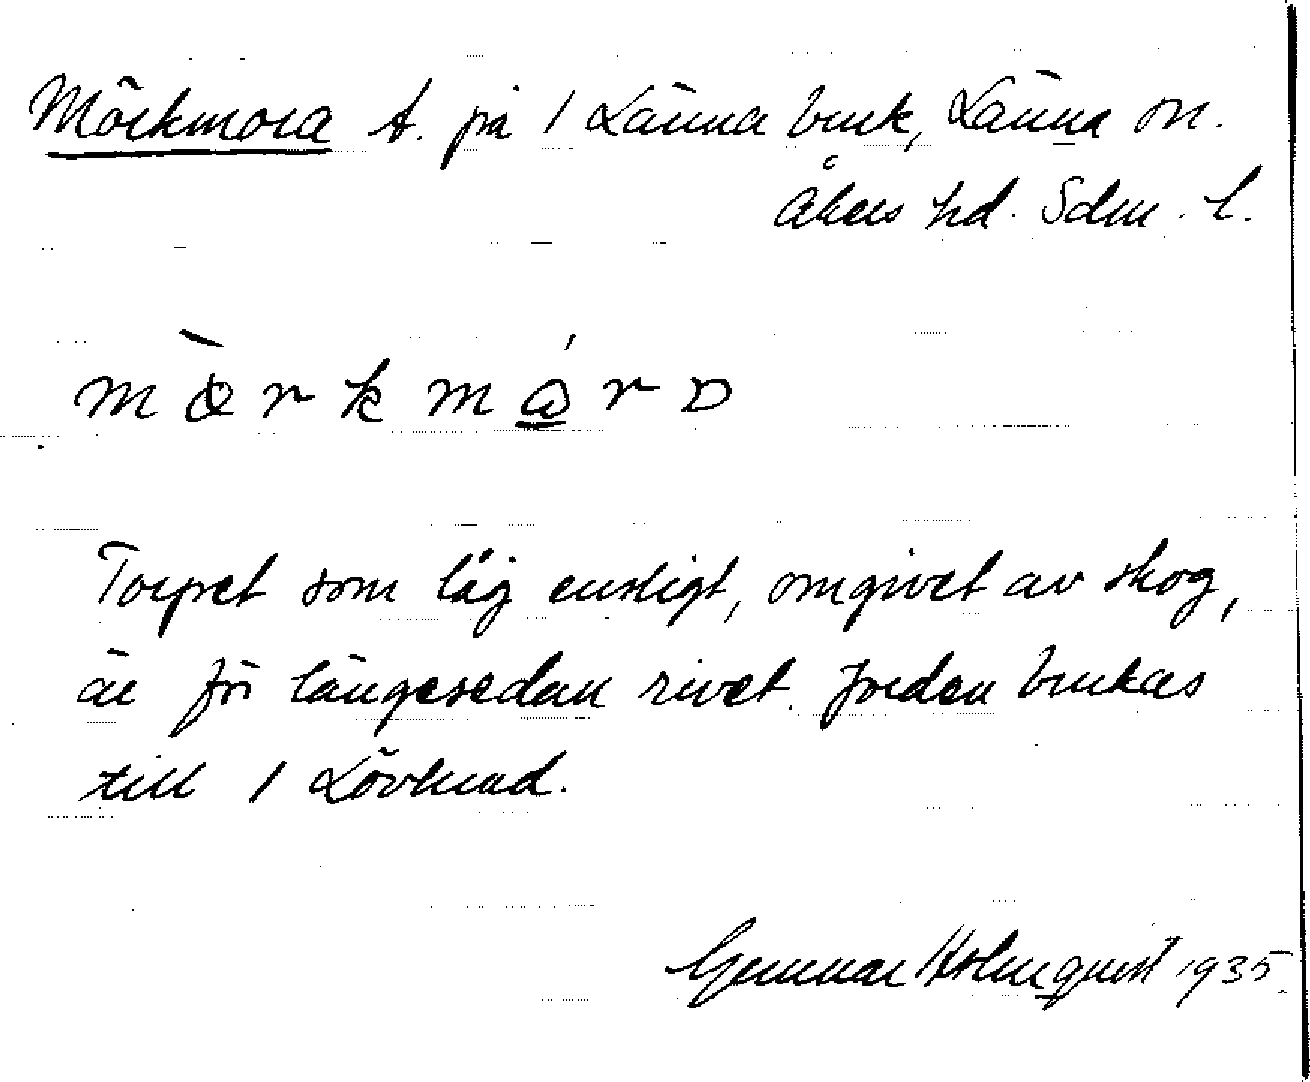 Mörkmora t. på 1 Länna bruk, Länna sn.
Åkers hd. Sdm. l.
Torpet som låg ensligt, omgivet av skog,
är för längesedan rivet. Jorden brukas
till 1 Lövhund.
Gunnar Holmquist 1935